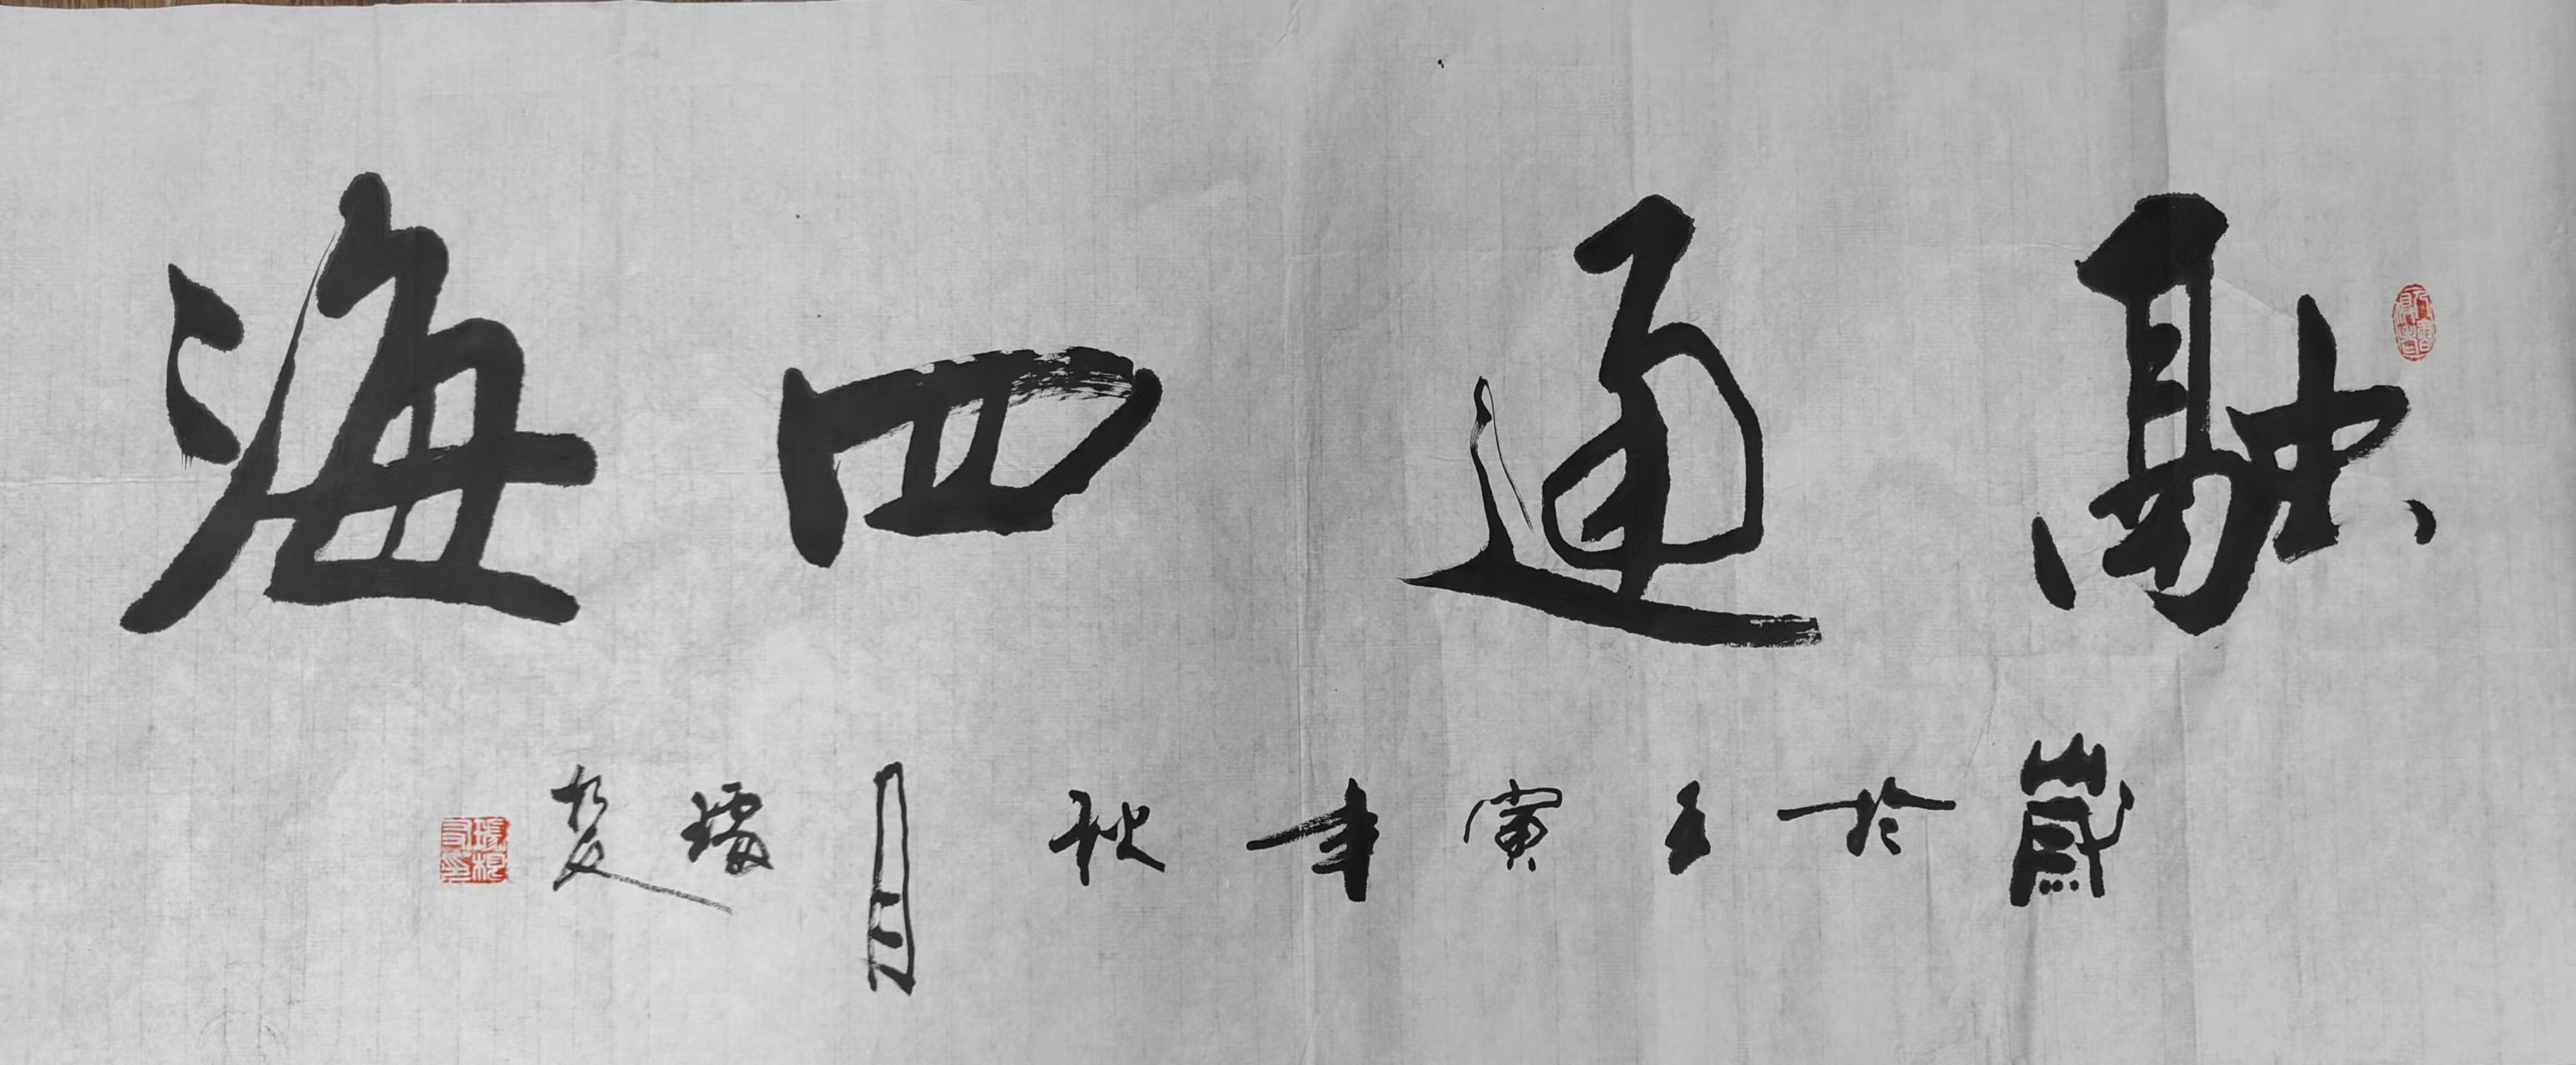 融通四海
歲於壬寅年秋月